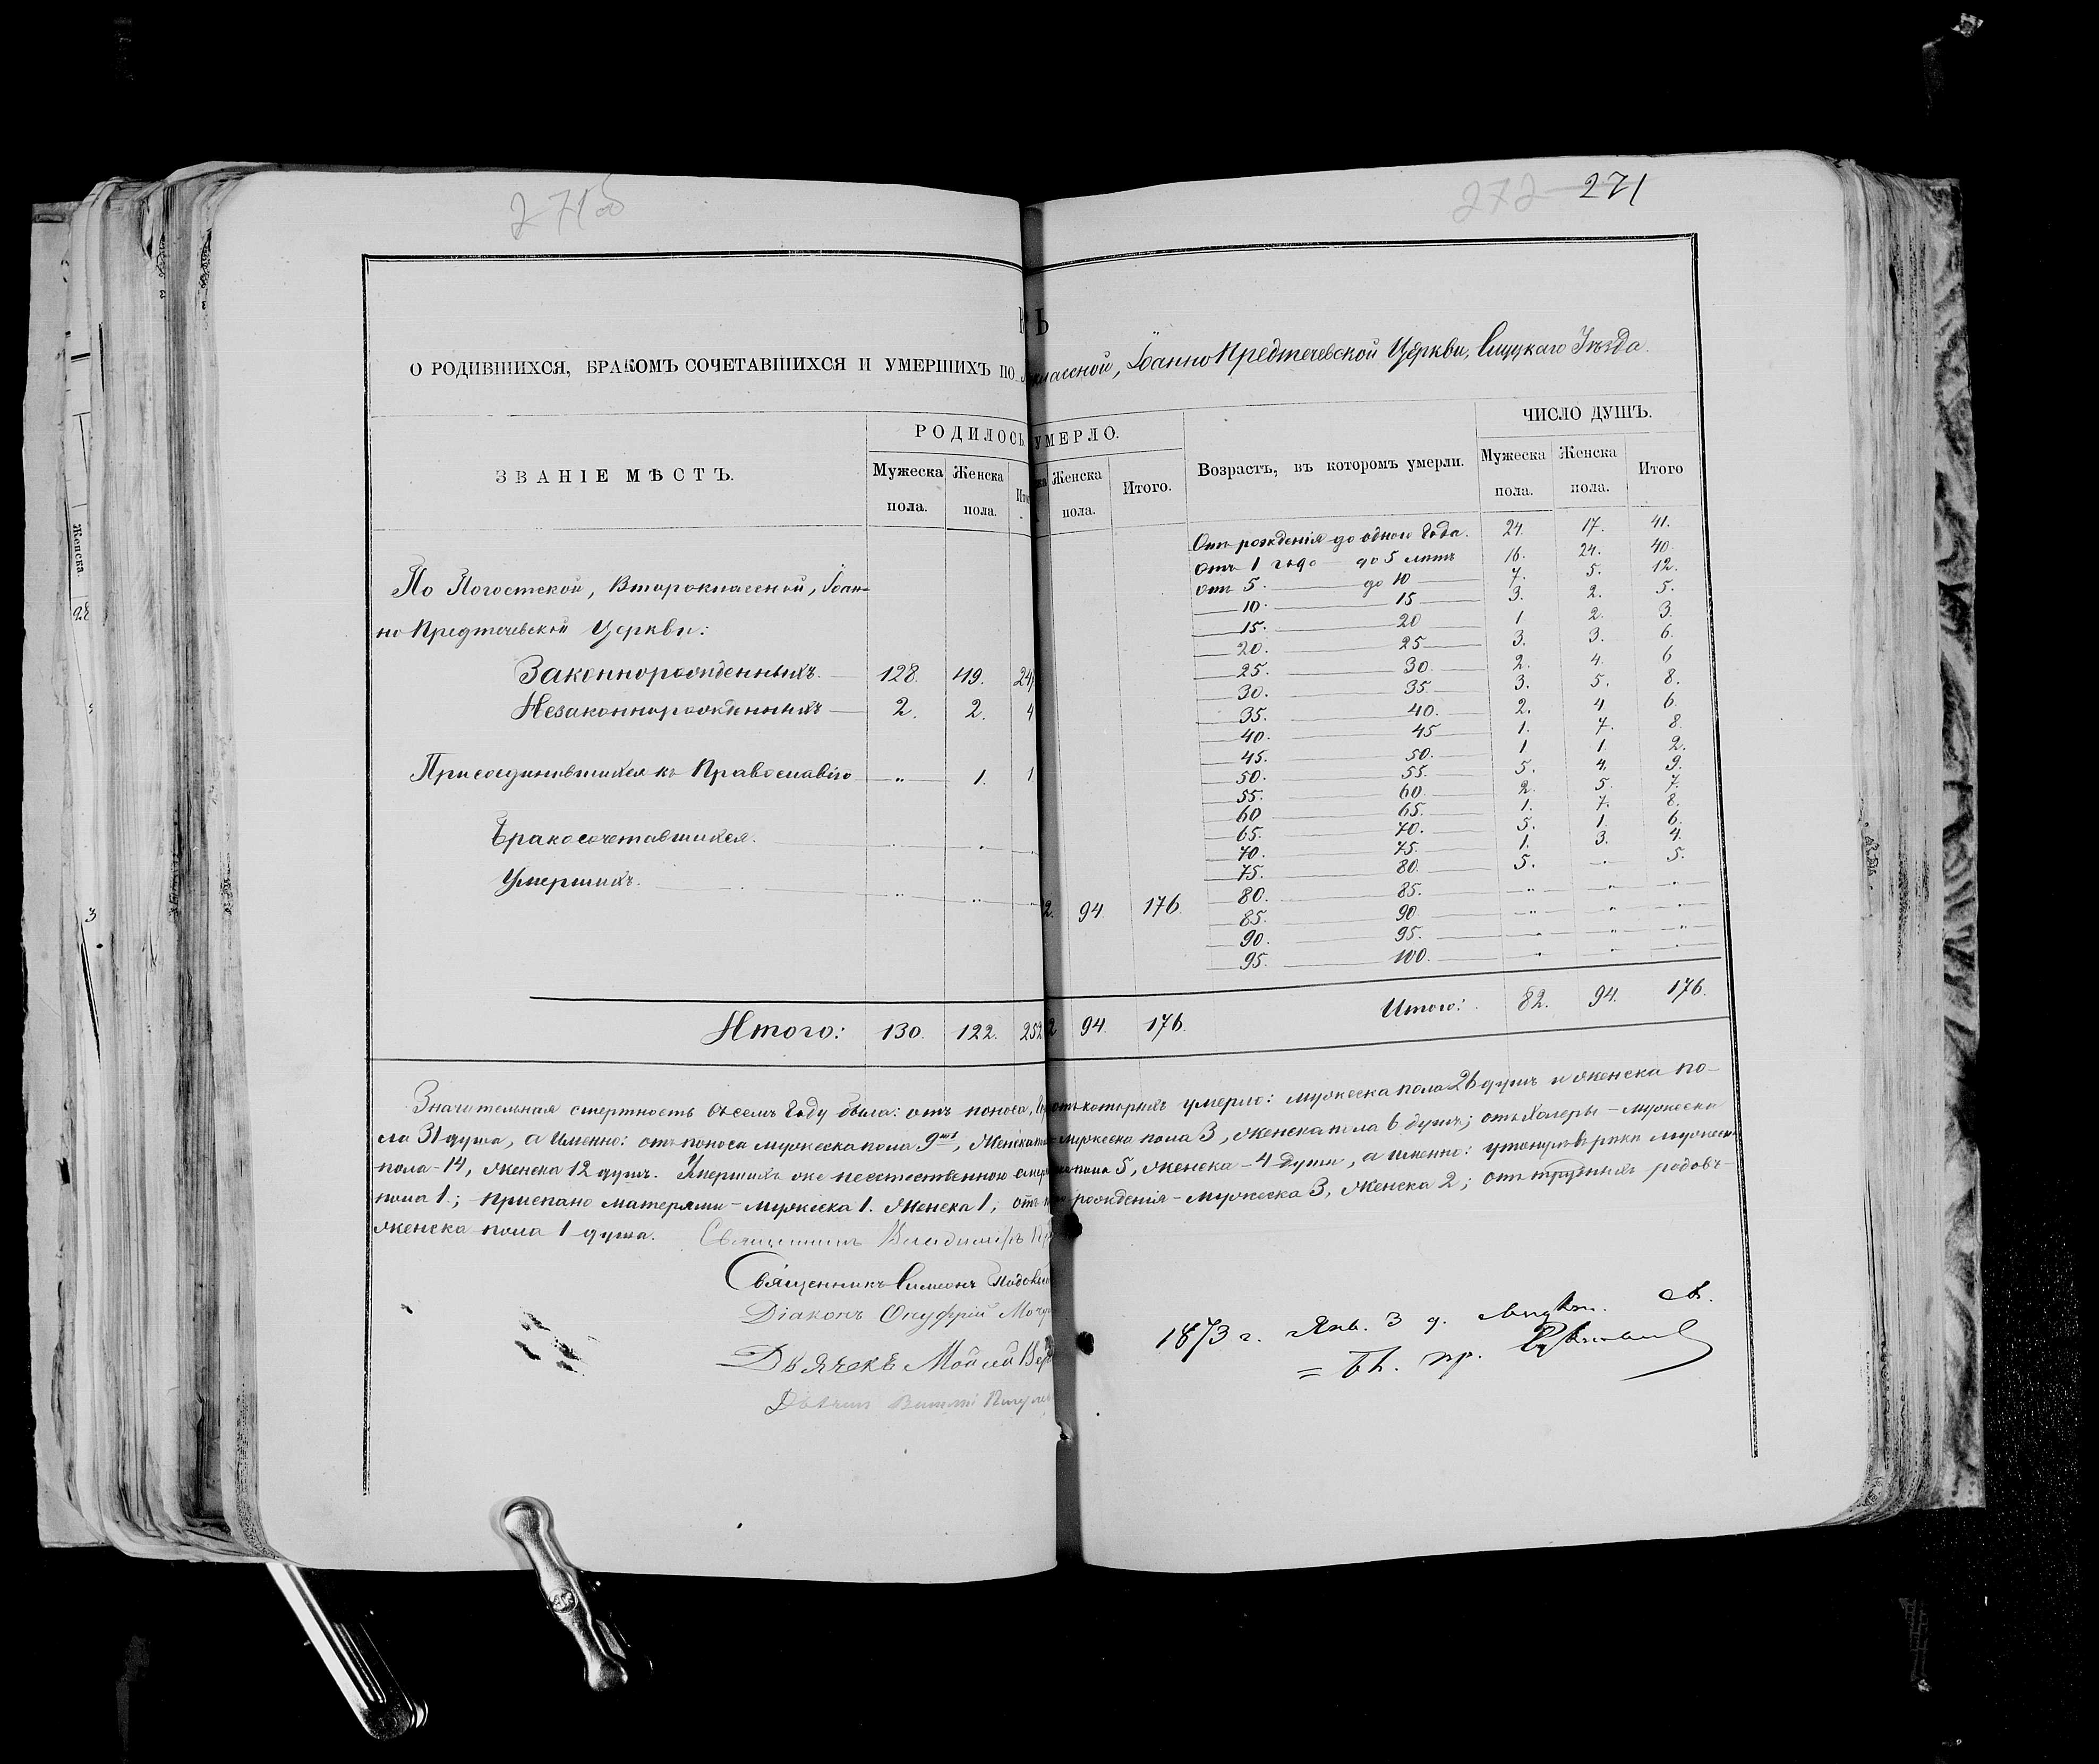 271об
272 271
О РОДИВШИХСЯ, БРАКОМЪ СОЧЕТАВШИХСЯ И УМЕРШИХЪ ПО
классной, Іоанно Предтечевской Церкви, Слуцкаго Уѣзда.
ЗВАНІЕ МѢСТЪ.
РОДИЛОСЬ.
Мужеска пола.
Женска пола.
По Погостской, Второклассной, Іоан-
но Предтечевской Церкви:
Законнорожденныхъ. 128. 119. 24
Незаконнорожденныхъ 2. 2. 4
Присоединившихся къ Православію „ 1. 1
Бракосочетавшихся. „ „ „
Умершихъ. „ „ „
Итого: 130. 122. 252
УМЕРЛО.
Женска пола.
Итого.
2. 94. 176.
2 94. 176.
Возрастъ, въ которомъ умерли.
ЧИСЛО ДУШЪ.
Мужеска пола.
Женска пола.
Итого
Отъ рожденія до одного года. 24. 17. 41.
отъ 1 года до 5 лѣтъ 16. 24. 40.
отъ 5. до 10 7. 5. 12.
10. 15 3. 2. 5.
15. 20 1. 2. 3.
20. 25 3. 3. 6.
25. 30. 2. 4. 6
30. 35. 3. 5. 8.
35. 40. 2. 4 6.
40. 45 1. 7. 8.
45. 50. 1. 1. 2.
50. 55. 5. 4. 9.
55. 60. 2. 5. 7.
60 65. 1. 7. 8.
65. 70. 5. 1. 6.
70. 75. 1. 3. 4.
75. 80. 5. „ 5.
80. 85. „ „ „
85. 90 „ „ „
90. 95. „ „ „
95. 100. „ „ „
Итого: 82. 94. 176.
Значительная смертность въ семъ году была: отъ поноса, отъ которыхъ умерло: мужеска пола 26 душъ и женска по-
ла 31 душа, а именно: отъ поноса мужеска пола 9ть, женска мужеска пола 3, женска пола 6 душъ; отъ холеры – мужеска
пола – 14, женска 12 душъ. Умершихъ же неестественною пола 5, женска – 4 души, а именно: утонулъ въ рѣкѣ мужеск
пола 1; приспано матерями – мужеска 1. женска 1; отъ рожденія – мужеска 3, женска 2; отъ трудныхъ родовъ –
женска пола 1 душа. Священникъ Владимиръ
Священникъ Симеонъ
Діаконъ Онуфрій
Дьячекъ Моисей
1873 г. Янв. 3 д.
Женска.
28
3